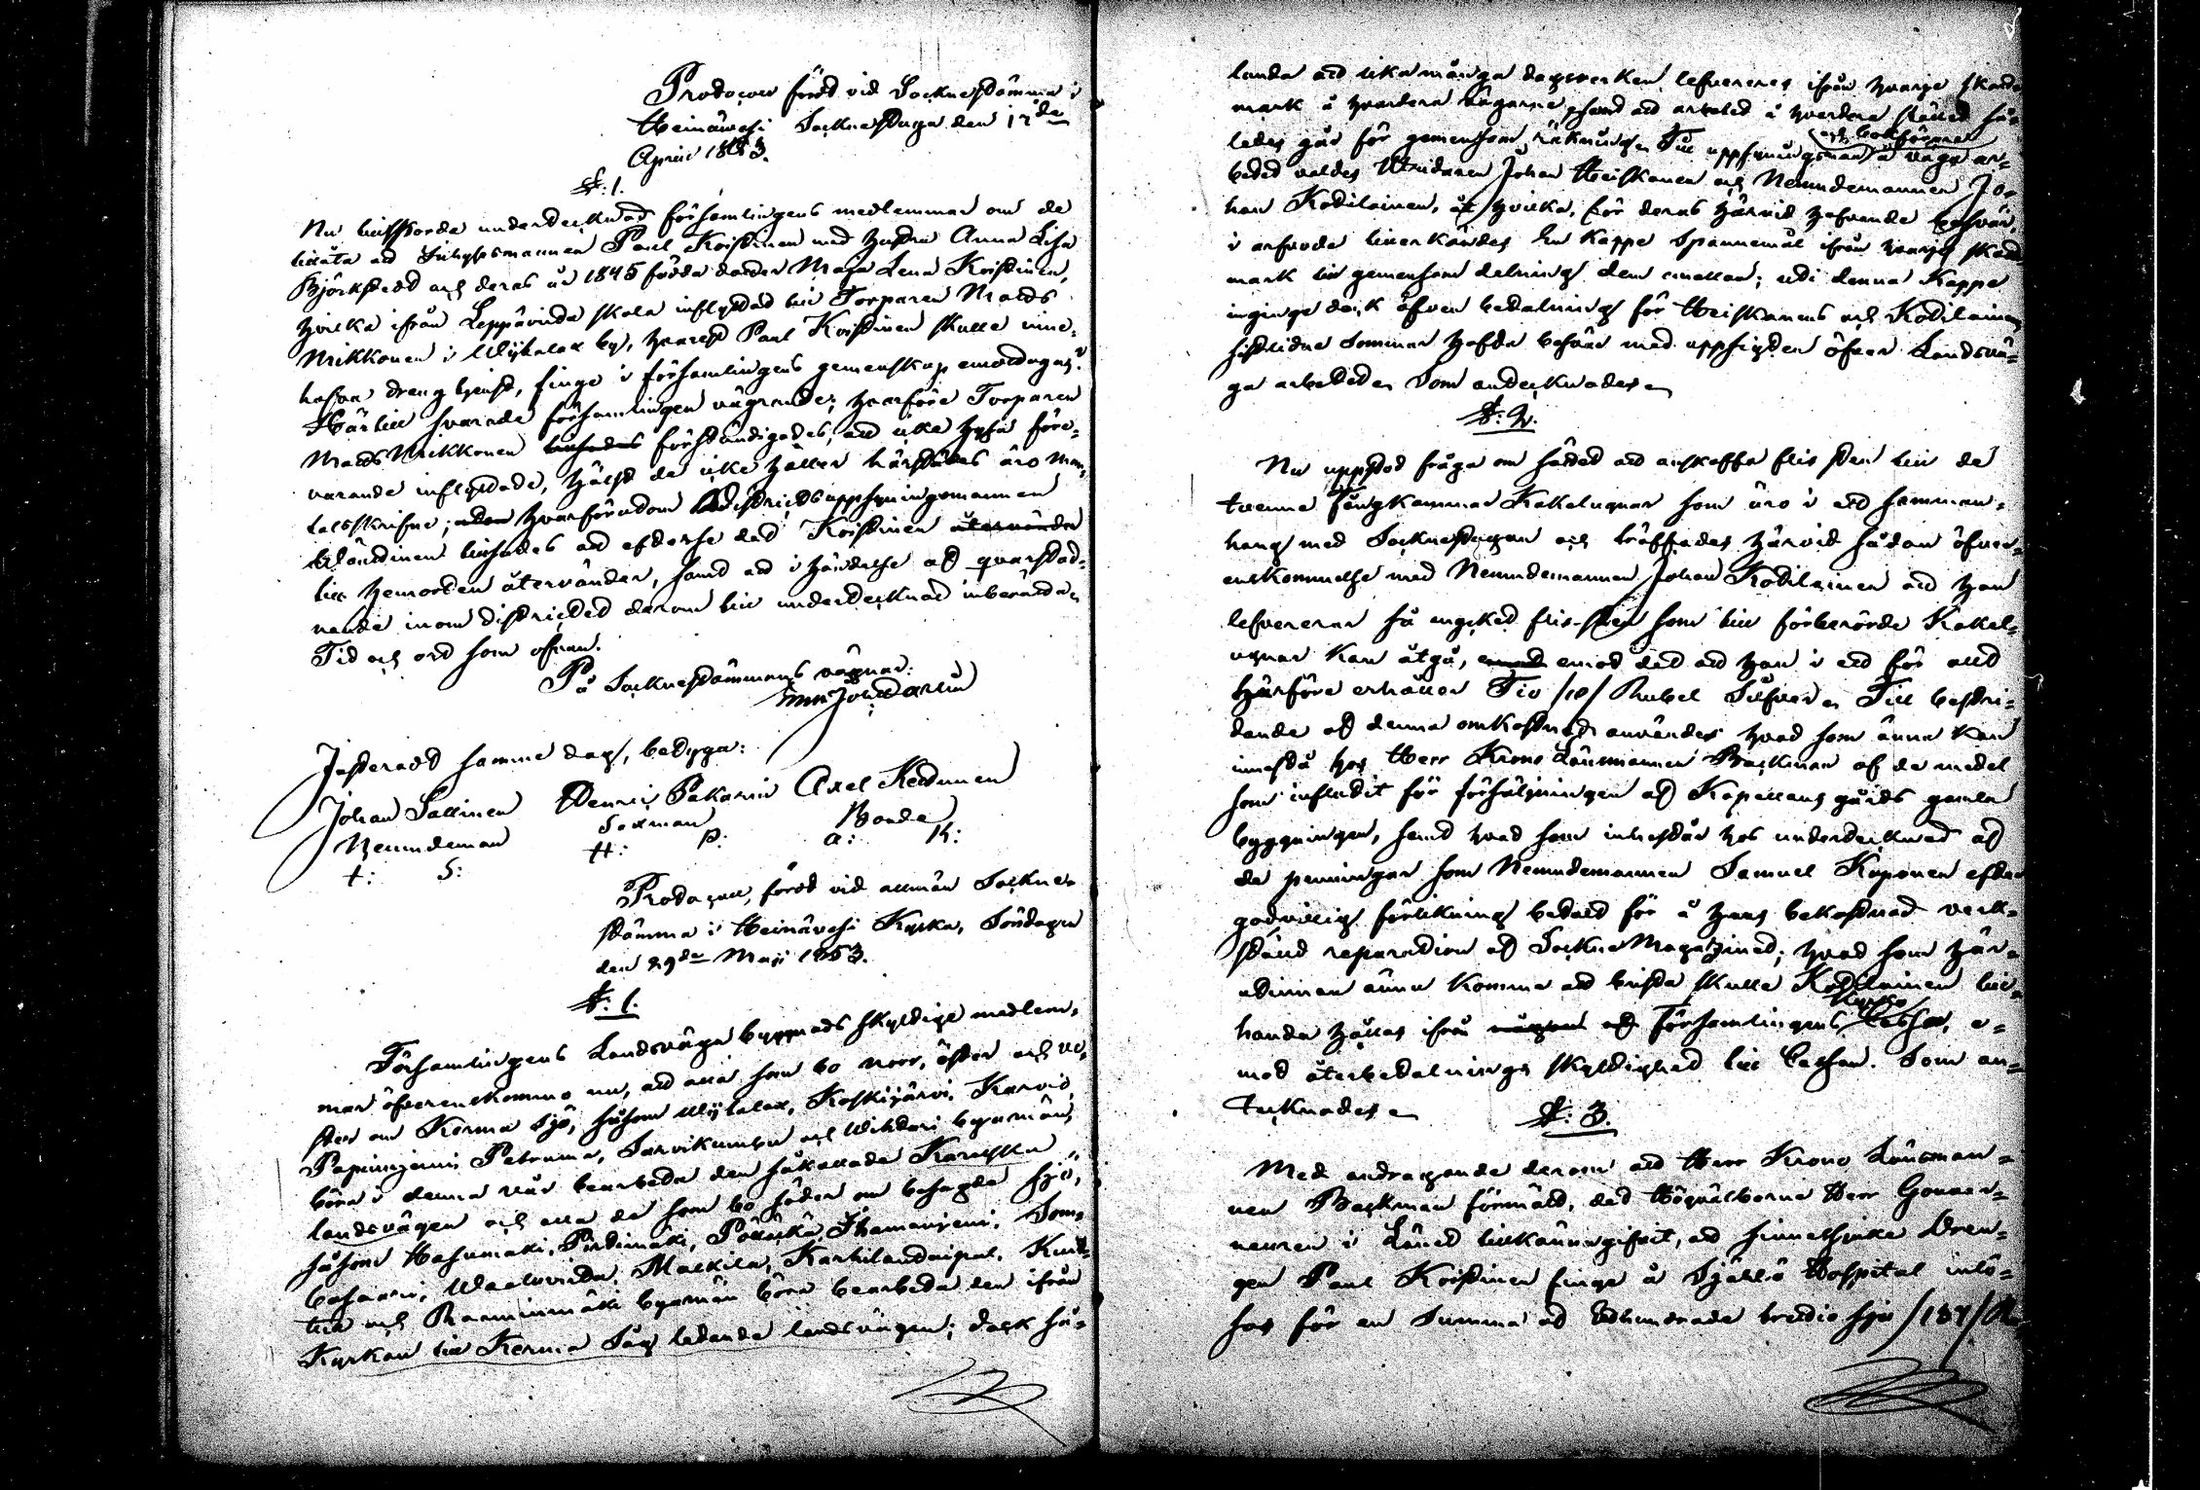 Protocoll fördt vid Sockneståmma i
Heinävesi Socknestuga den 17de
April 1853.
§. 1.
Nu tillspordes undertecknad församlingens medlemmar om de
tillåta att Inhysesmannen Paul Koistinen med hustru Anna Lisa
Björkstedt och deras år 1845 födda dotter Maja Lena Koistinen,
hvilka ifrån Leppävirta skola inflyttat till Torparen Matts
Mikkonen i Wihtalax by, hvarest Paul Koistinen skulle inne-
hafva dreng tjenst, finge i församlingens gemenskap emottagas?
Härtill svarade församlingen vägrande; hvarföre Torparen
Matts Mikkonen förständigades, att icke hysa före-
varande inflyttade, hälst de icke heller härstädes äro Man-
talsskrifne; hvarförutom districtsuppsyningsmannen
tillsades att efterse det Koistinen
till hemorten återvänder, samt att i händelse af qvarstad-
nande inom districtet derom till undertecknad inberätta.
Tid och ord som ofvan.
På Sockneståmmans vägnar:
Justeradt samma dag, betyga:
Johan Sallinen Henric Pakarin Axel Kettunen
Nemndeman Sexman Bonde
J: S: H: P: A: K:
Protocoll, fördt vid allmän Sockne-
ståmma i Heinävesi Kyrka, Söndagen
den 29de Maji 1853.
§. 1.
Församlingens Landsväga byggnads skyldige medlem-
mar öfverenskommo nu, att alla som bo norr, öster och ve-
ster om Kerma sjö, såsom Wihtalax, Koskijärvi, Karvio,
Papinniemi, Petruma, Sarvikumpu och Wihtari byamän,
böra i denna vår bearbeta den såkallade Karvio
landsvägen och alla de som bo söder om besagde sjö,
såsom Hasumäki, Pirttimäki, Pölläkkä, Ihamaniemi, Som-
Malkila, Karhilandaipal,
och Rummukkamäki byamän böra bearbeta den ifrån
Kyrkan till Kerma Såg ledande landsvägen; dock så-
lunda att lika många dagsverken lefvereres ifrån hvarje skatte
mark å hvardera vägarne, samt att arbetet å hvardera stället så-
ledes går för gemensam räkning. Till uppsyningsman
och bokförare
å väga ar-
betet valdes Wridaren Johan Heiskanen och Nemndemannen Jo-
han Kotilainen, åt hvilka, för deras härvid hafvande besvär,
i arfvode tillerkändes En Kappe Spannemål ifrån hvarje skatt-
mark till gemensam delning dem emellan; uti denna Kappe
inginge dock äfven betalning för Heiskanens och Kotilainens
sistlidne Sommar hafda besvär med uppsigten öfver Landsvä-
ga arbetet. Som antecknades.
§. 2.
Nu uppstod fråga om sättet att anskaffa fris sten till de
tvenne Fångkammar Kakelugnar som äro i ett samman-
hang med Socknestugan och träffades härvid sådan öfver-
enskommelse med Nemndemannen Johan Kotilainen att han
lefvererar så mycket fris-sten som till förberörde Kakel-
ugnar kan åtgå, emot det att han i ett för allt
härföre erhåller Tio /10/ Rubel Silfver. Till bestri-
dande af denna omkostnad användes hvad som ännu kan
innestå hos Herr Krono Länsmannen Backman af de medel
som influtit för försäljningen af Kapellans gårds gamla
byggningen, samt hvad som innestår hos undertecknad af
de penningar som Nemndemannen Samuel Kuponen efter
godvillig förlikning betalt för å hans bekostnad verk-
ställd reparation af Sockne Magatzinet; hvad som här-
utinnan ännu komma att brista skulle Kotilainen till-
handa hållas ifrån Församlingens
Kyrko
Cassa, e-
mot återbetalnings skyldighet till Cassan. Som an-
tecknades.
§. 3.
Med andragande derom att Herr Krono Länsman-
nen Backman förmält, det Högvälborne Herr Gouver-
neuren i Länet tillkännagifvit, att sinnessjuke Dren-
gen Paul Koistinen finge å Själö Hospital inlö-
sas för en Summa af Etthundrade trettio sju /137/